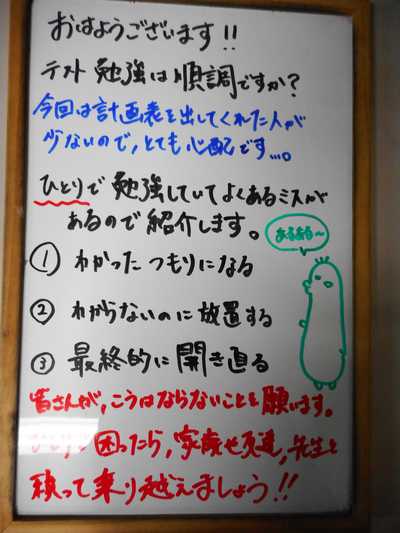 おはようございます!!
テスト勉強は順調ですか?
今回は計画表を出してくれた人が
少ないので,とても心配です…。
ひとりで勉強していてよくあるミスが
あるので紹介します。
あるある~
① わかったつもりになる
② わからないのに放置する
③ 最終的に開き直る
皆さんが,こうはならないことを願います。
困ったら,家族や友達,先生と
頼って乗り越えましょう!!